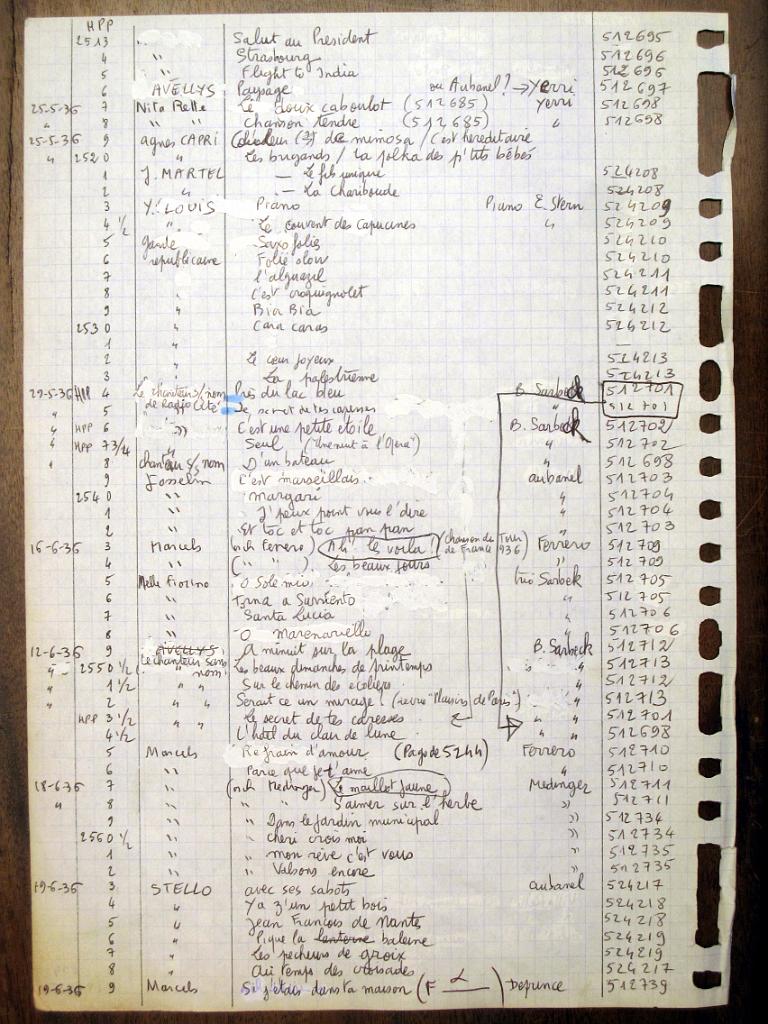 HPP
2513 " Salut au President 512695
4 " Strasbourg 512696
5 " Flight to India 512696
6 AVELLYS Paysage ou Aubanel? → Yerri 512697
25-5-36 7 Nita Relle Le doux caboulot (512685) Yerri 512698
" 8 " " Chanson tendre (512685) " 512698
25-5-36 9 agnes CAPRI (?) de mimosa / C'est hereditaire
" 2520 " Les brigands / la polka des p'tits bébés
1 J. MARTEL — Le fils unique 524208
2 " — La Chariboude 524208
3 Y. LOUIS Piano Piano E. Stern 524209
4 1/2 " Le couvent des capucines " 524209
5 garde Saxo folies 524210
6 republicaine Folie slow 524210
7 l'alguazil 524211
8 " C'est croquignolet 524211
9 " Bia Bia 524212
2530 " Cara caras 524212
1 " —
2 " Le cœur joyeux 524213
3 " La palestrienne 524213
29-5-36 HPP 4 Le chanteur s/ nom Près du lac bleu B. Sarbeck 512701
" 5 de Radio Cité Le secret de tes caresses " 512701
" HPP 6 " C'est une petite etoile B. Sarbeck 512702
" HPP 7 3/4 " Seul ("Une nuit à l'Opera") " 512702
" 8 chanteur s/ nom D'un bateau " 512698
9 Josselin C'est marseillais aubanel 512703
2540 " margari " 512704
1 " J'peux point vous l'dire " 512704
2 " Et toc et toc pan pan " 512703
16-6-36 3 Marcels (orch Ferrero) Ah! le voila! chanson du Tour de France 1936 Ferrero 512709
4 " (" ") Les beaux jours " 512709
5 Melle Fiorino O Sole mio trio Sarbek 512705
6 " Torna a Surriento " 512705
7 " Santa Lucia " 512706
8 " O Marenariello " 512706
12-6-36 9 AVELLYS A minuit sur la plage B. Sarbeck 512712
" 2550 1/2 Le chanteur sans nom Les beaux dimanches de printemps " 512713
" 1 1/2 " " Sur le chemin des ecoliers " 512712
" 2 " " Serait ce un mirage? (revue "Plaisirs de Paris") " 512713
HPP 3 1/2 " " Le secret de tes caresses ← " " 512701
4 1/2 L'hôtel du clair de lune " " 512698
5 Marcels Refrain d'amour (Pagode 5244) Ferrero 512710
6 " Parce que je t'aime " 512710
18-6-36 7 " (orch Medinger) Le maillot jaune Medinger 512711
" 8 " " " S'aimer sur l'herbe " 512711
9 " " Dans le jardin municipal " 512734
2560 1/2 " " cheri crois moi " 512734
1 " " mon rêve c'est vous " 512735
2 " " Valsons encore " 512735
19-6-36 3 STELLO avec ses sabots aubanel 524217
4 " Ya z'un petit bois 524218
5 " Jean François de Nantes 524218
6 " Pique la lanterne baleine 524219
7 " Les pecheurs de groix 524219
8 " Au temps des croisades 524217
19-6-36 9 Marcels Si j'étais dans ta maison (F ) Deprince 512739